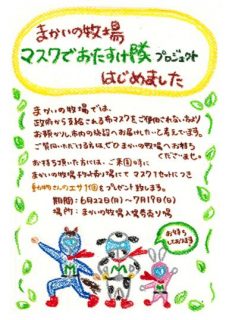 まかいの牧場
マスクでおたすけ隊プロジェクト
はじめました
まかいの牧場では、
政府から支給される布マスクをご使用されない方より
お預かりし市内の施設へお届けしたいと考えています。
ご賛同いただける方はぜひ牧場へお持ち
くださいませ。
お持ち頂いた方には、ご来園時に
まかいの牧場入場売り場にてマスク1セットにつき
動物さんのエサ1個をプレゼント致します。
期間：6月22日(月)～7月19日(日)
場所：まかいの牧場入場券売り場
お待ち
しております
M
M
M